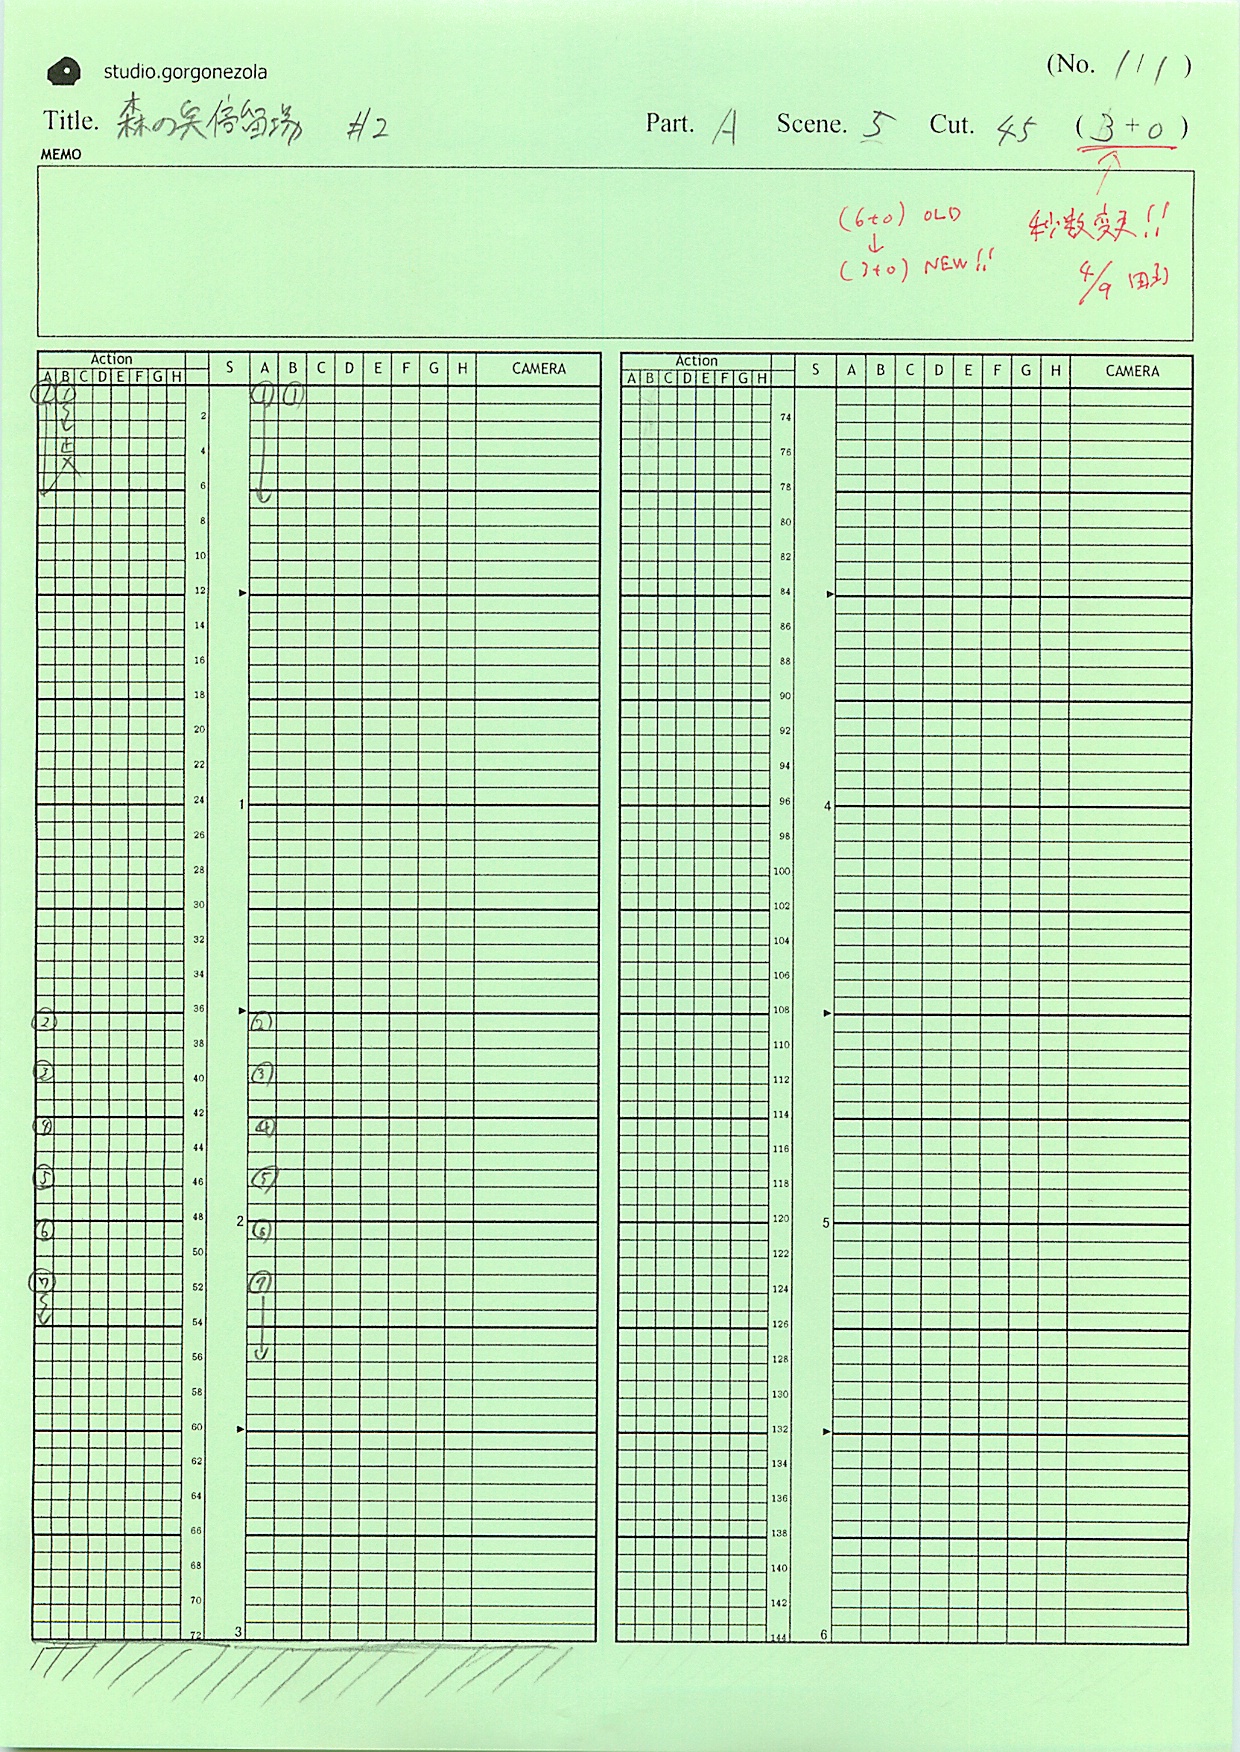 studio.gorgonezola
(No. 111 )
Title. 森の 停留場 #2
Part. A Scene. 5 Cut. 45 ( 3+0 )
MEMO
(6+0) OLD
↓
(3+0) NEW!!
秒数変更!!
4/9
Action
S A B C D E F G H CAMERA
A B C D E F G H
① ① ① ①
止メ
2
4
6
8
10
12
14
16
18
20
22
24 1
26
28
30
32
34
36
② ②
38
③ ③
40
42
④ ④
44
⑤ ⑤
46
48 2
⑥ ⑥
50
⑦ ⑦
52
54
56
58
60
62
64
66
68
70
72 3
Action
S A B C D E F G H CAMERA
A B C D E F G H
74
76
78
80
82
84
86
88
90
92
94
96 4
98
100
102
104
106
108
110
112
114
116
118
120 5
122
124
126
128
130
132
134
136
138
140
142
144 6